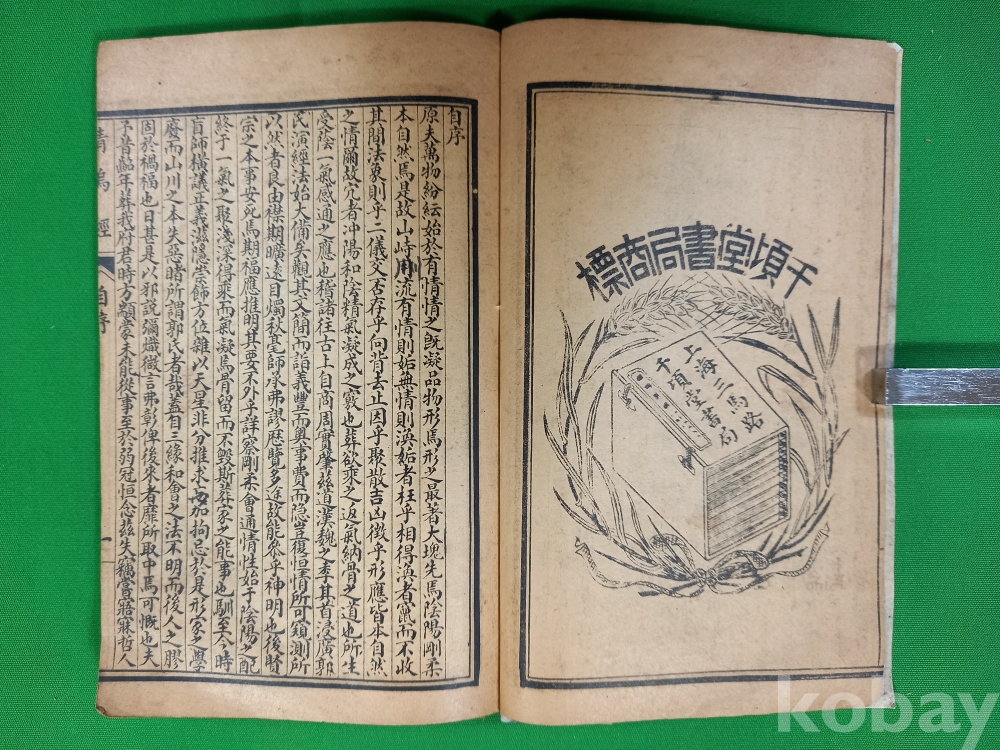 千頃堂書局商標
上海三馬路
千頃堂書局
自序
原夫萬物紛紜始於有情情之既凝品物形焉形之最著大塊先焉陰陽剛柔
本自然焉是故山峙川流有情則姤無情則渙姤者枉乎相得渙者竄而不收
其間法象則乎二儀交否存乎向背去止因乎聚散吉凶徵乎形應皆本自然
之情爾故穴者沖陽和陰精氣凝成之竅也葬欲乘之返氣納骨之道也所生
受蔭一氣感通之應也稽諸往古上自商周實肇兹道漢魏之季其首浸廣郭
氏演經法始大備矣觀其文簡而詣義豐而奧事費而隐豈復恒情所可窺測所
以然者良由襟期曠遠目燭秋毫師承弗謬歷覽多途故能參乎神明也後賢
宗之本事安死焉期福應推明其要不外乎詳察剛柔會通情性始于陰陽之配
終于一氣之聚淺深得乘而氣凝焉骨留而不毁斯葬家之能事也馴至今時
盲師横議正義兹隱崇飾方位雜以天星非分推求加拘忌於是形家之學
廢而山川之本失惡睹所謂郭氏者哉蓋自三緣和會之法不明而後人之膠
固於禍福也日甚是以邪説彌熾微言弗彰俾後來者靡所取中焉可慨也夫
予昔齠年葬我府君時方顓蒙未能從事至於弱冠恒念兹失竊嘗寤寐哲人
青烏經
自序
一
kobay